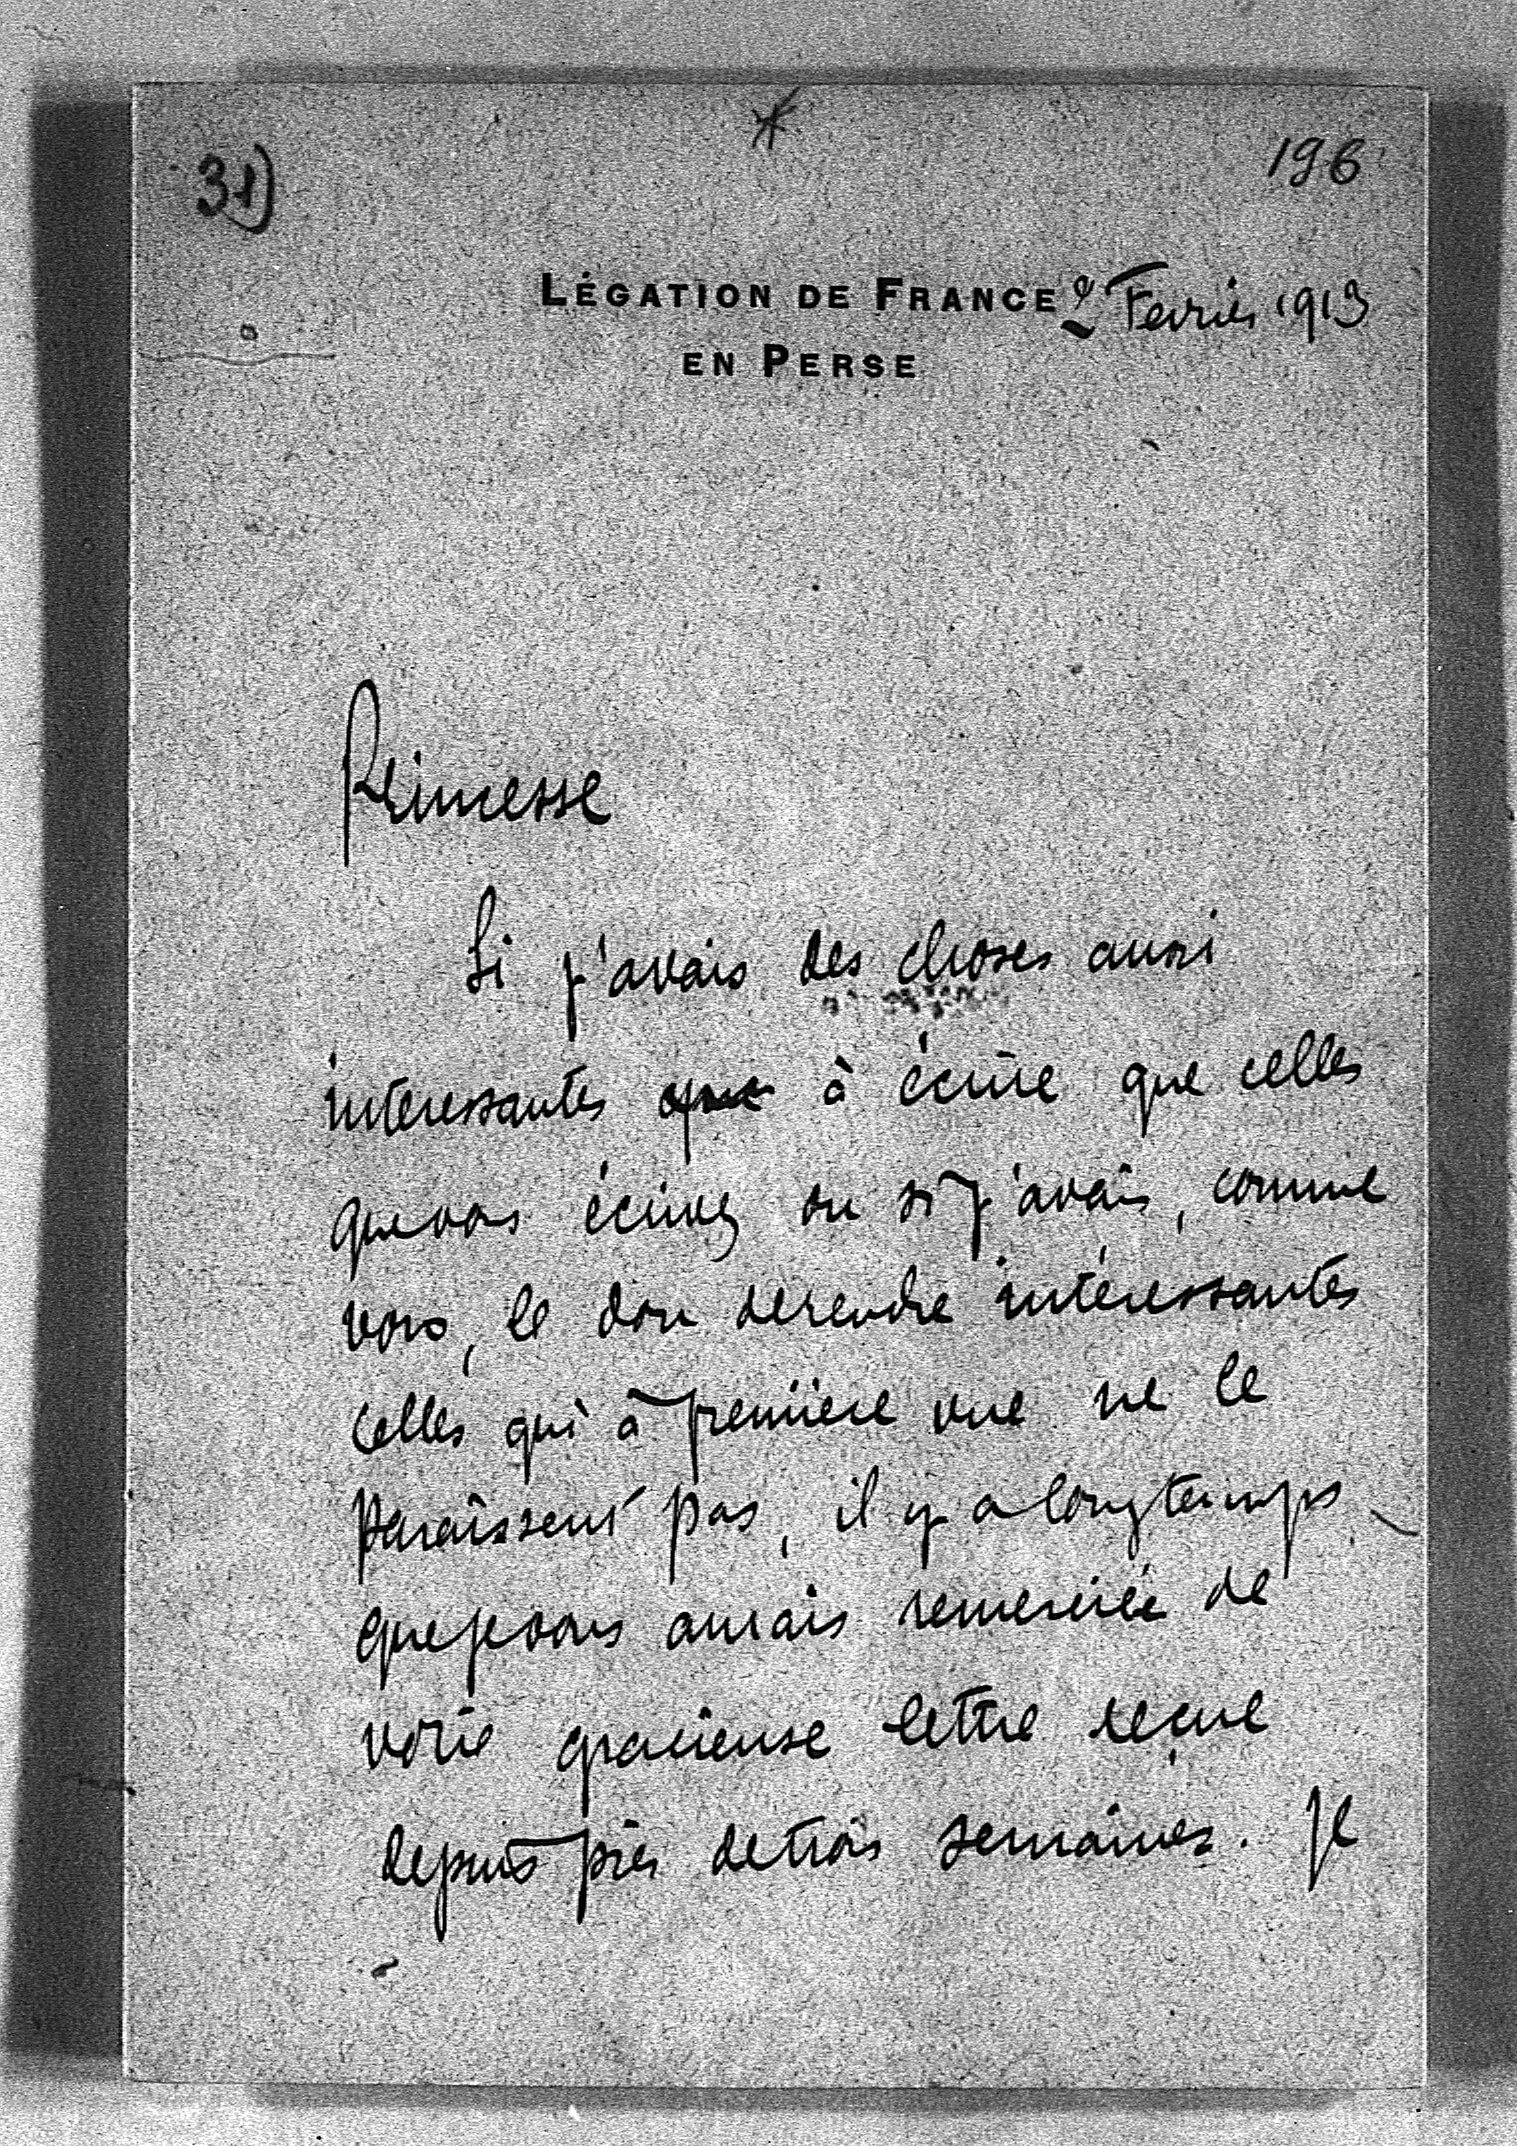 31)
196
LÉGATION DE FRANCE 2 Fevrier 1913
EN PERSE
Princesse
Si j'avais des choses aussi
interessantes que à écrire que celles
que vous écrivez ou si j'avais, comme
vous, le don de rendre intéressantes
celles qui à première vue ne le
paraissent pas, il y a longtemps
que je vous aurais remerciée de
votre gracieuse lettre reçue
depuis près de trois semaines. Je